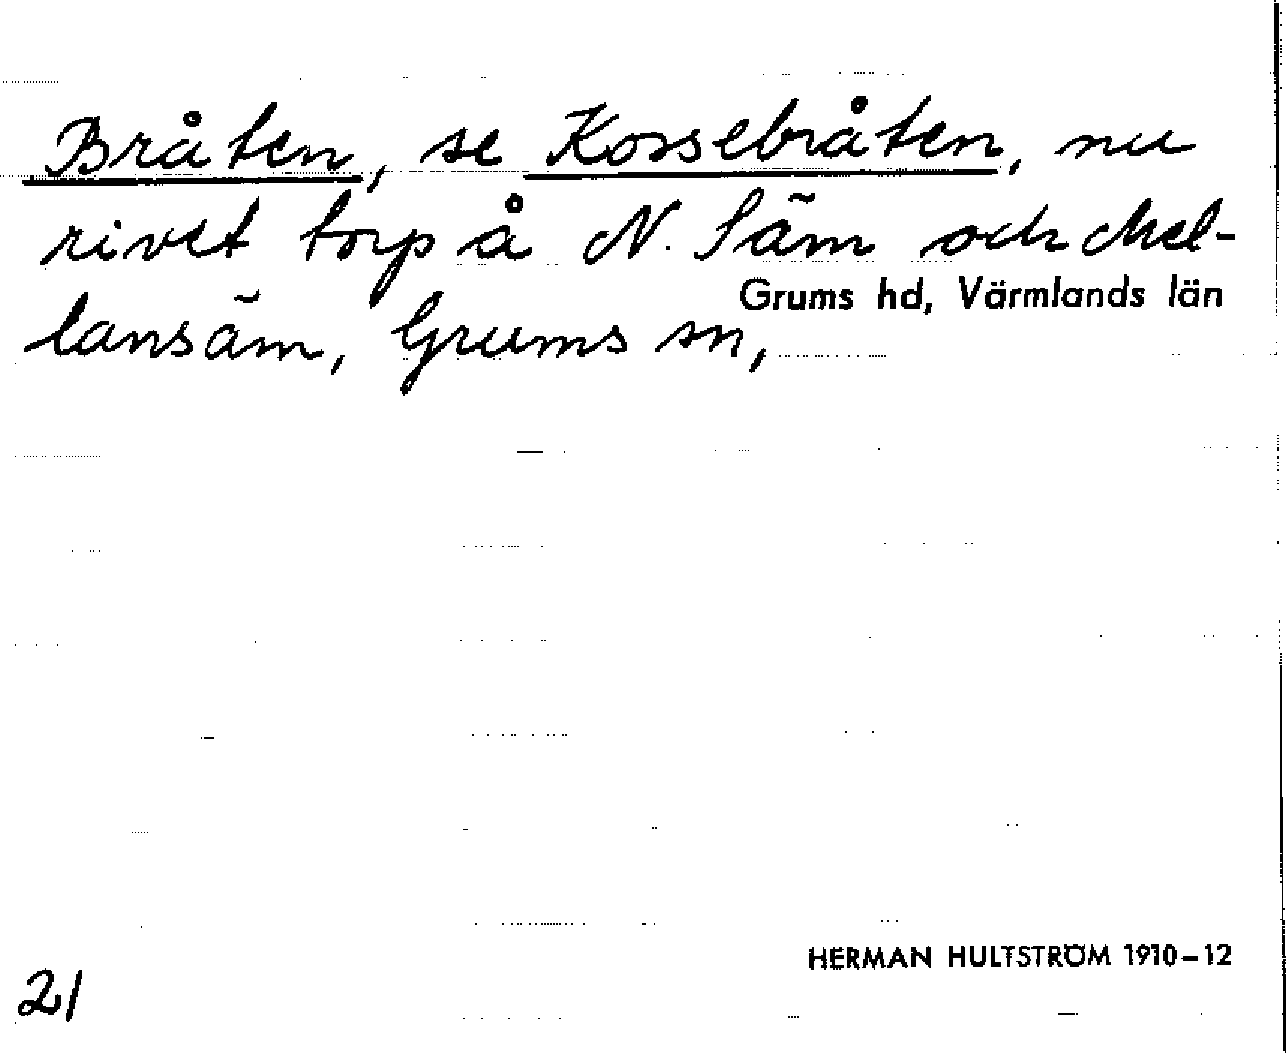 Bråten, se Korsebråten, nu
rivet torp å N. Säm och Mel-
lansäm, Grums sn,
Grums hd, Värmlands län
HERMAN HULTSTRÖM 1910-12
21